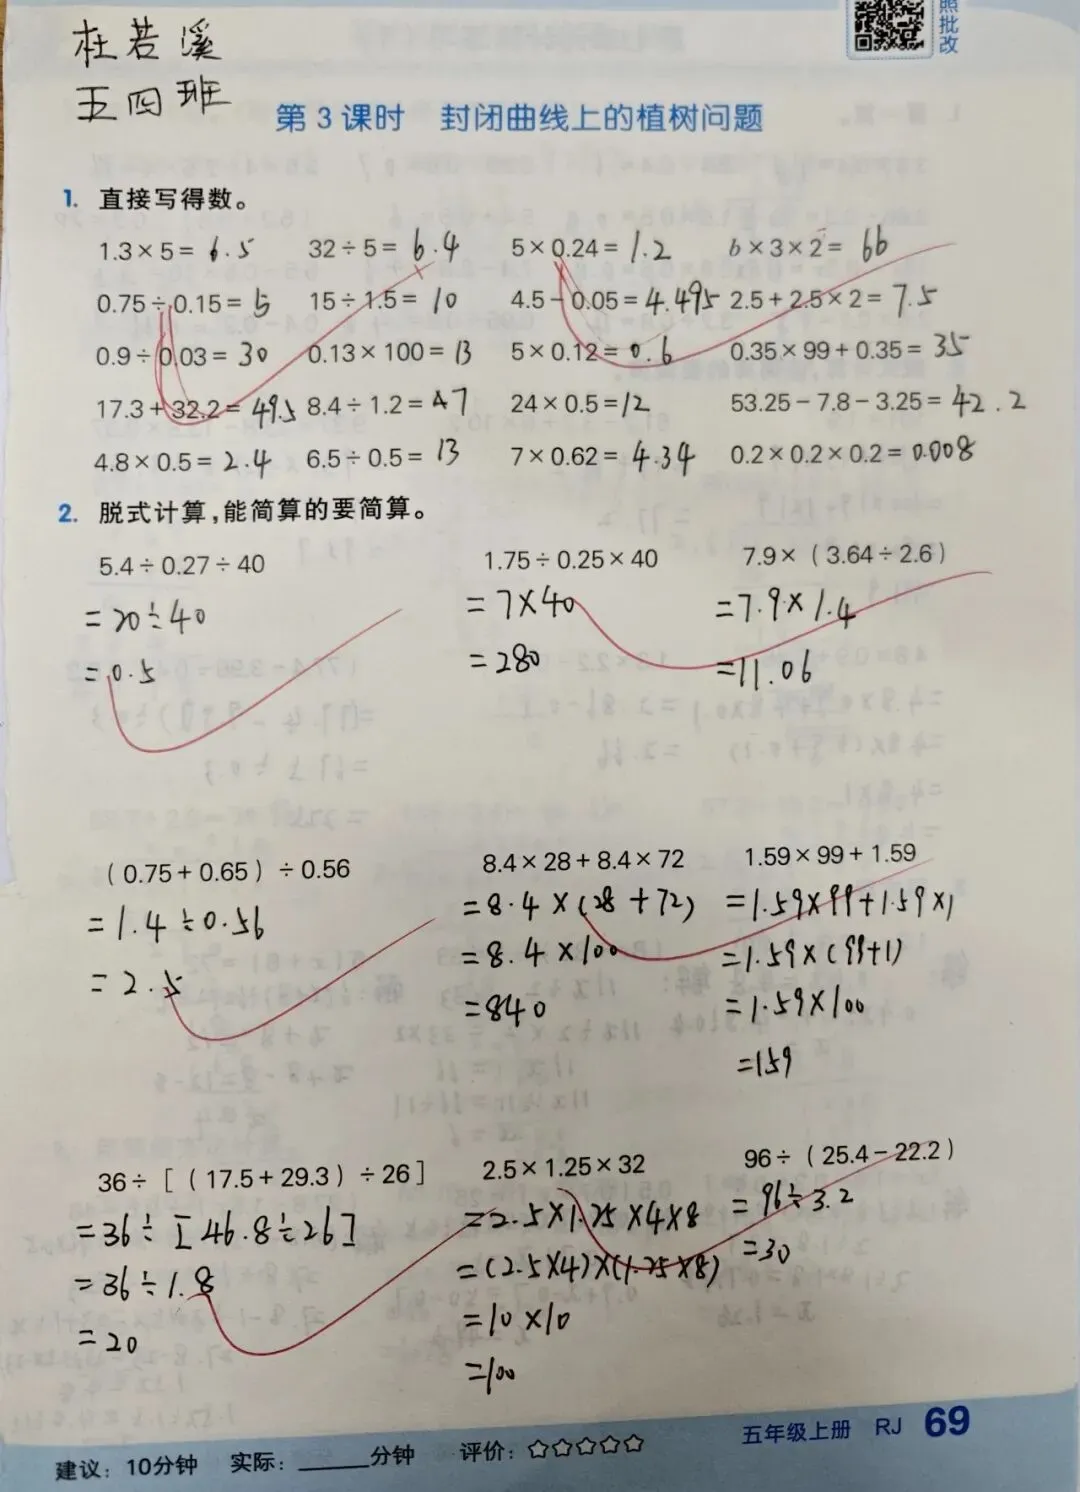 照批改
杜若溪
五四班
第3课时 封闭曲线上的植树问题
1. 直接写得数。
1.3×5= 6.5 32÷5= 6.4 5×0.24= 1.2 6×3×2= 66
0.75÷0.15= 5 15÷1.5= 10 4.5-0.05= 4.495 2.5+2.5×2= 7.5
0.9÷0.03= 30 0.13×100= 13 5×0.12= 0.6 0.35×99+0.35= 35
17.3+32.2= 49.5 8.4÷1.2= 7 24×0.5= 12 53.25-7.8-3.25= 42.2
4.8×0.5= 2.4 6.5÷0.5= 13 7×0.62= 4.34 0.2×0.2×0.2= 0.008
2. 脱式计算,能简算的要简算。
5.4÷0.27÷40 1.75÷0.25×40 7.9×(3.64÷2.6)
=20÷40 =7×40 =7.9×1.4
=0.5 =280 =11.06
(0.75+0.65)÷0.56 8.4×28+8.4×72 1.59×99+1.59
=1.4÷0.56 =8.4×(28+72) =1.59×99+1.59×1
=2.5 =8.4×100 =1.59×(99+1)
=840 =1.59×100
=159
36÷[(17.5+29.3)÷26] 2.5×1.25×32 96÷(25.4-22.2)
=36÷[46.8÷26] =2.5×1.25×4×8 =96÷3.2
=36÷1.8 =(2.5×4)×(1.25×8) =30
=20 =10×10
=100
五年级上册 RJ 69
建议:10分钟 实际:______分钟 评价:☆☆☆☆☆